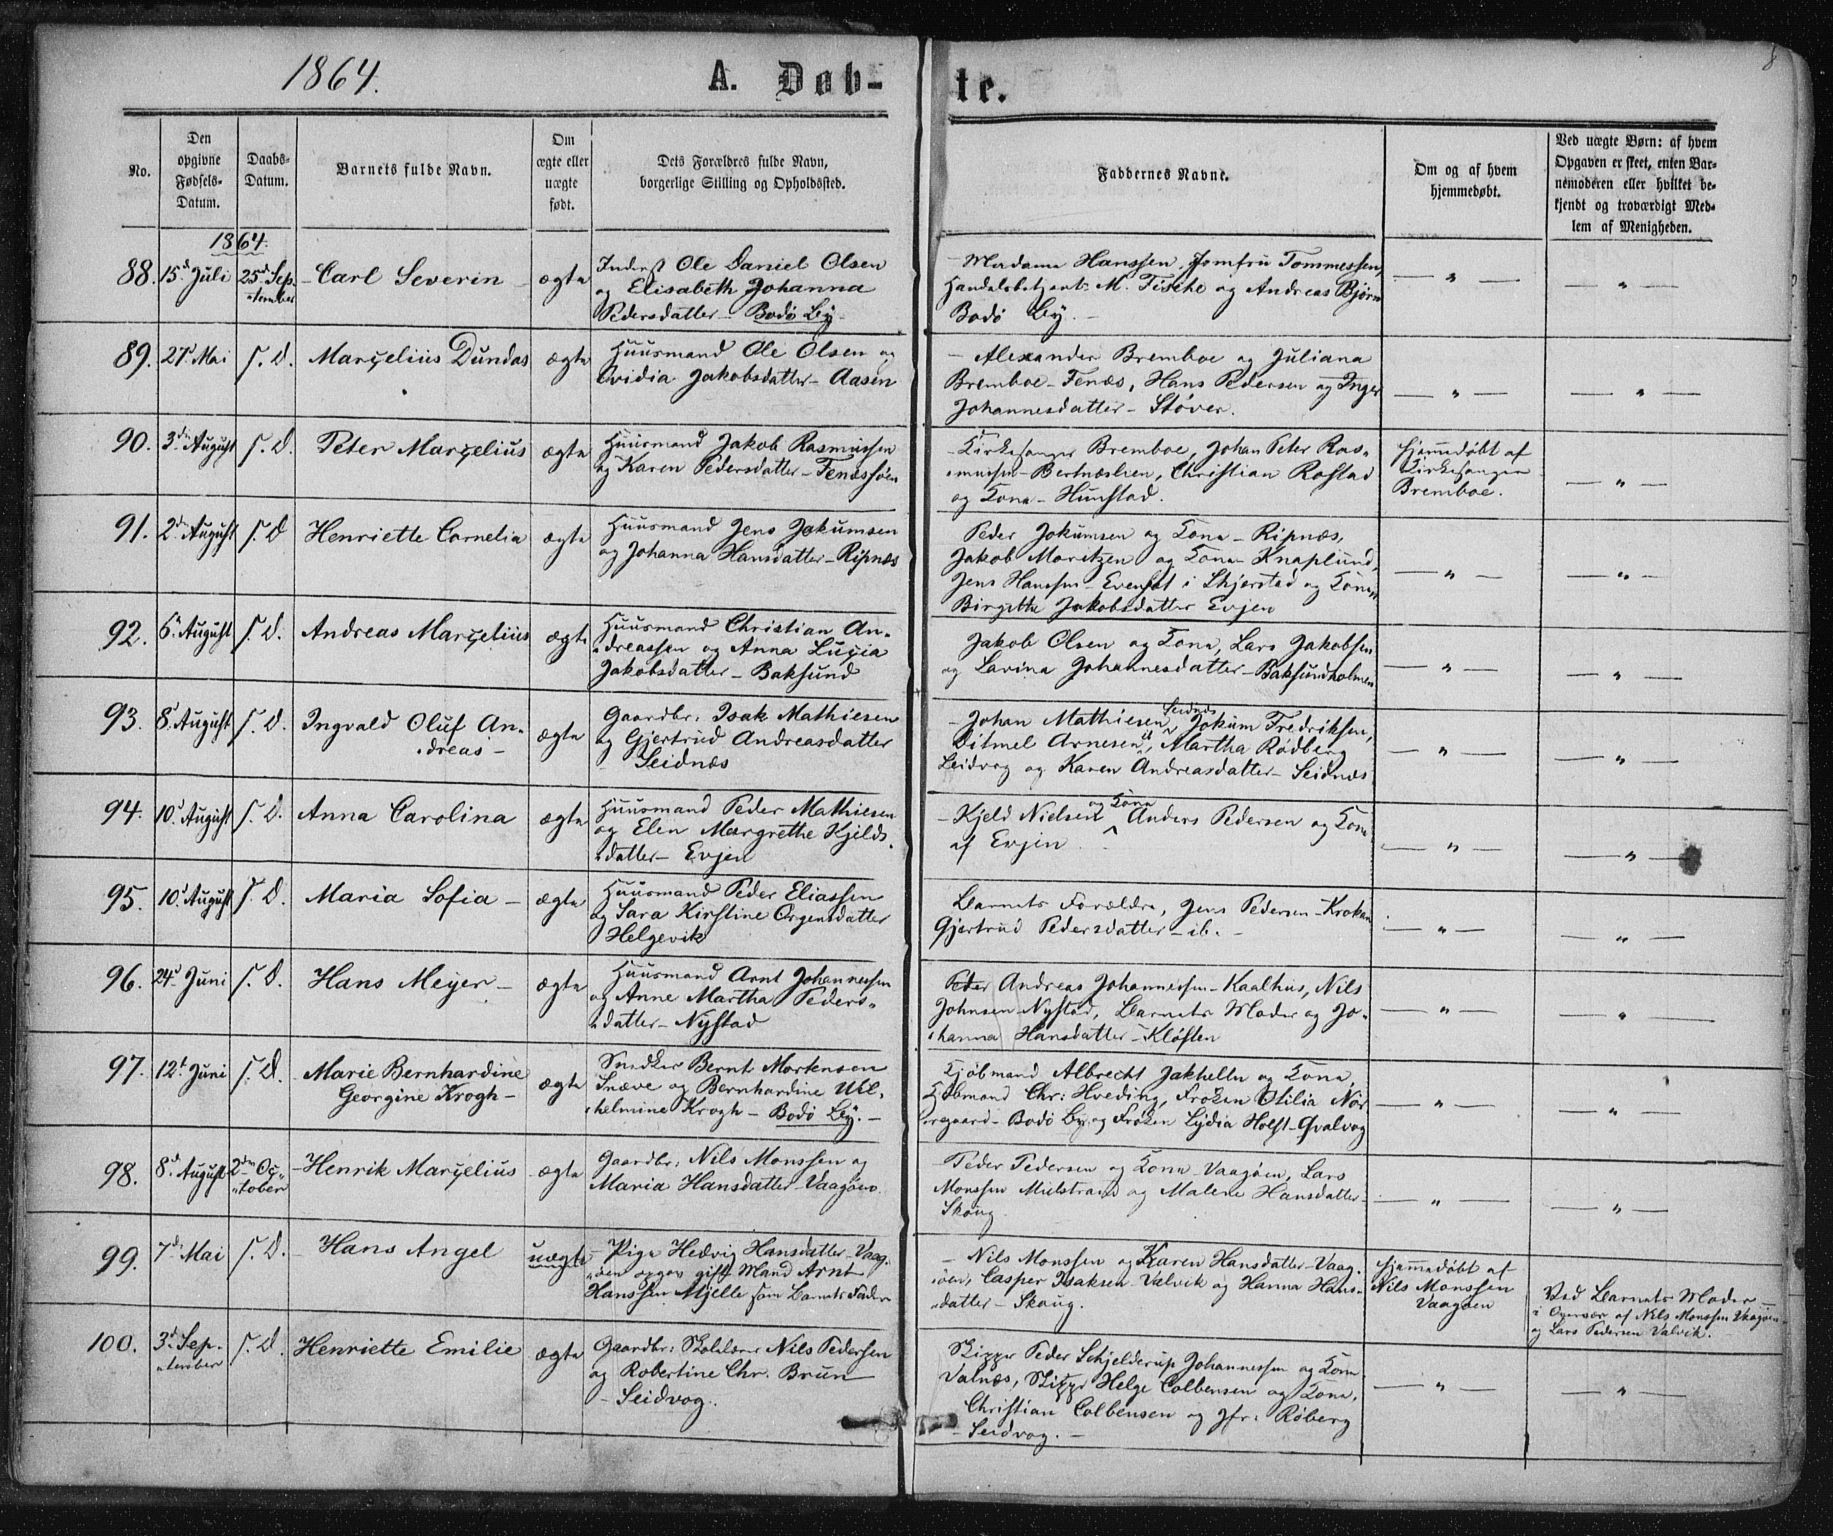 1864. A. Døb- te. 8
No.
Den opgivne Fødsels-Datum.
Daabs-Datum.
Barnets fulde Navn.
Om ægte eller uægte født.
Dets Forældres fulde Navn, borgerlige Stilling og Opholdssted.
Faddernes Navne.
Om og af hvem hjemmedøbt.
Ved uægte Børn: af hvem Opgaven er skeet, enten Barnemoderen eller hvilket bekjendt og troværdigt Medlem af Menigheden.
1864.
88. 15d Juli 25d Sep- "tember - Carl Severin - ægte
Inderst Ole Daniel Olsen
og Elisabeth Johanna
Pedersdatter - Bodø By.
- Madame Hanssen, Jomfru Tommessen,
Handelsbetjent M. Tische og Andreas Bjørn
Bodø By. -
— " — — " —
89. 27d Mai S. D. Marçelius Dundas ægte
Huusmand Ole Olsen og
Ovidia Jakobsdatter - Aasen
- Alexander Bremboe og Juliana
Bremboe - Fenæs, Hans Pedersen og Inger
Johannesdatter - Støver.
— " — — " —
90. 3die August S. D. Peter Marçelius ægte
Huusmand Jakob Rasmussen
og Karen Pedersdatter - Fenæssøen
- Kirkesanger Bremboe, Johan Peter Ras-
"mussen - Bertnæslien, Christian Rostad
og Kona - Hunstad.
Hjemmedøbt af
Kirkesanger
Bremboe.
— " —
91. 2den August S. D Henriette Cornelia ægte
Huusmand Jens Jakumsen
og Johanna Hansdatter - Ripnæs
Peder Jokumsen og Kona - Ripnæs,
Jakob Moritzen og Kona - Knaplund,
Jens Hanssen - Evenset i Skjerstad og Konen
Birgitte Jakobsdatter Evjen
— " — — " —
92. 6te August S. D. Andreas Marçelius ægte
Huusmand Christian An-
"dreassen og Anna Luçia
Jakobsdatter - Baksund
Jakob Olsen og Kona, Lars Jakobsen
og Lavina Johannesdatter - Baksundholmen
— " — — " —
93. 8d August S. D. Ingvald Oluf An-
"dreas - ægte
Gaardbr: Isak Mathiesen
og Gjertrud Andreasdatter
- Seidnæs
- Johan Mathiesen Seidnæs, Jokum Fredriksen,
Ditmel Arnesen, Martha Rødberg
Seidvog og Karen Andreasdatter - Seidnæs
— " — — " —
94. 10d August S. D. Anna Carolina ægte
Huusmand Peder Mathiesen
og Elen Margrethe Kjelds-
"datter - Evjen
- Kjeld Nielsen og Kona Anders Pedersen og Kona
af Evjen.
— " — — " —
95. 10d August S. D. Maria Sofia - ægte
Huusmand Peder Eliassen
og Sara Kirstine Orgensdatter
Helgevik
Barnets Forældre, Jens Pedersen - Krokan
Gjertrud Pedersdatter - ib. -
— " — — " —
96. 24d Juni S. D. Hans Meyer - ægte
Huusmand Arnt Johannessen
og Anne Martha Peders-
"datter - Nystad
Peder Andreas Johannessen - Kaalhus, Nils
Johnsen - Nystad, Barnets Moder og Jo-
"hanna Hansdatter - Kløften
— " — — " —
97. 12te Juni S. D. Marie Bernhardine
Georgine Krogh - ægte
Snedker Bernt Mortensen
Træve og Bernhardine Wil-
"helmine Krogh - Bodø By. -
Kjøbmand Albrecht Jakhelln og Kona,
Kjøbmand Chr: Hveding, Frøken Otilia Nor-
"regaard - Bodø By og Frøken Lydia Holst - Qvalvog
— " — — " —
98. 8d August 2den Oç- "tober - Henrik Marçelius ægte
Gaardbr: Nils Monssen og
Maria Hansdatter - Vaagøen.
- Peder Pedersen og Kona - Vaagøen, Lars
Monssen Mulstrand og Malene Hansdatter
Skoug
— " — — " —
99. 7de Mai S. D. - Hans Angel uægte
- Pige Hedvig Hansdatter - Vaag-
"øen opgav gift Mand Arnt
Hanssen Mjelle som Barnets Fader
- Nils Monssen og Karen Hansdatter - Vaag-
"øen, Casper Isaksen Valvik og Hanna Hans-
"datter - Skoug.
Hjemmedøbt af
Nils Monssen
Vaagøen
Ved Barnets Moder
i Overvær af Nils Monssen Vaagøen
og Lars Pedersen Valvik.
100. 3d Sep- "tember S. D. Henriette Emilie ægte
Gaardbr: Skolelærer Nils Pedersen
og Robertine Chr. Brun
- Seidvog.
Skipper Peder Schjelderup Johannessen og Kona
Valnæs, Skipper Helge Colbensen og Kona,
Christian Colbensen og Jfr: Røberg
- Seidvog. -
— " — — " —